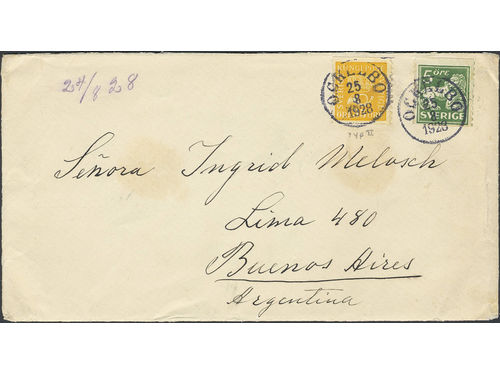 24/8 28
KUNGL. POST
OCKELBO
25
8
1928
TYP II
5 ÖRE
OCKELBO
25
8
1928
SVERIGE
Señora Ingrid Melosch
Lima 480
Buenos Aires
Argentina